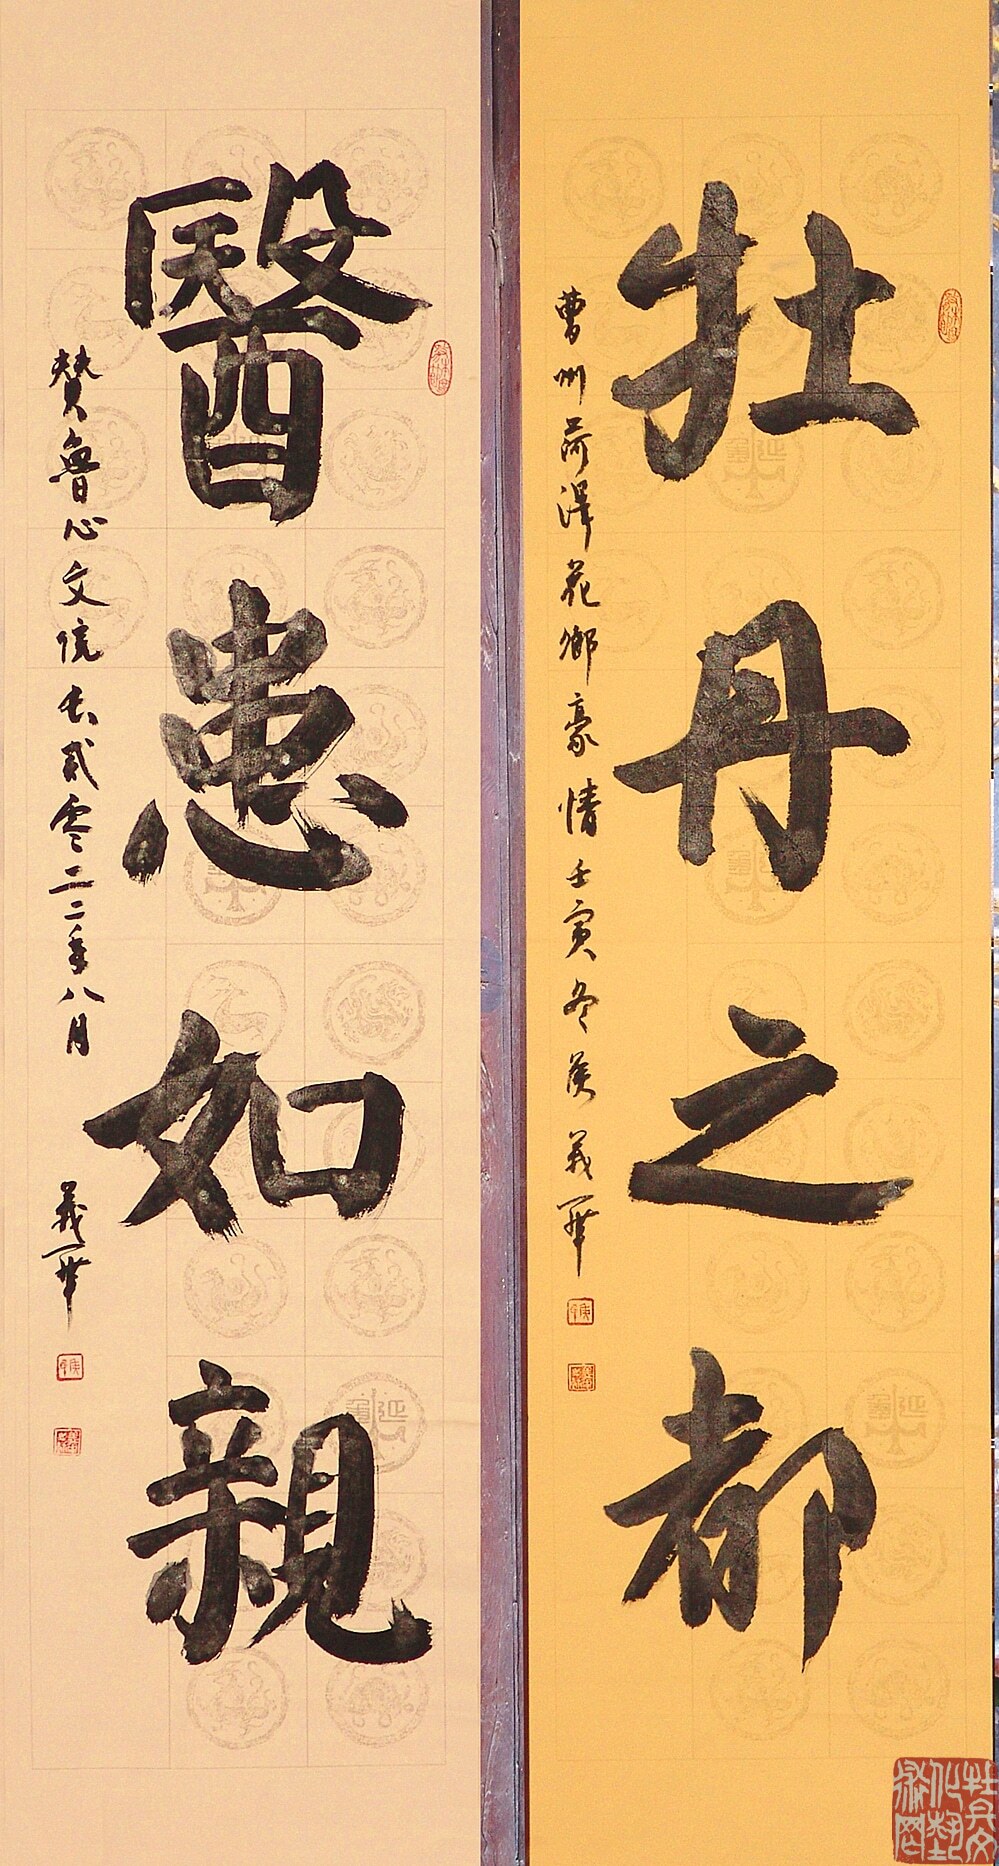 牡丹之都
曹州菏澤花鄉豪情壬寅冬侯義華
醫患如親
贊魯心文院 貳零二二年八月
義華
牡丹文化藝術網